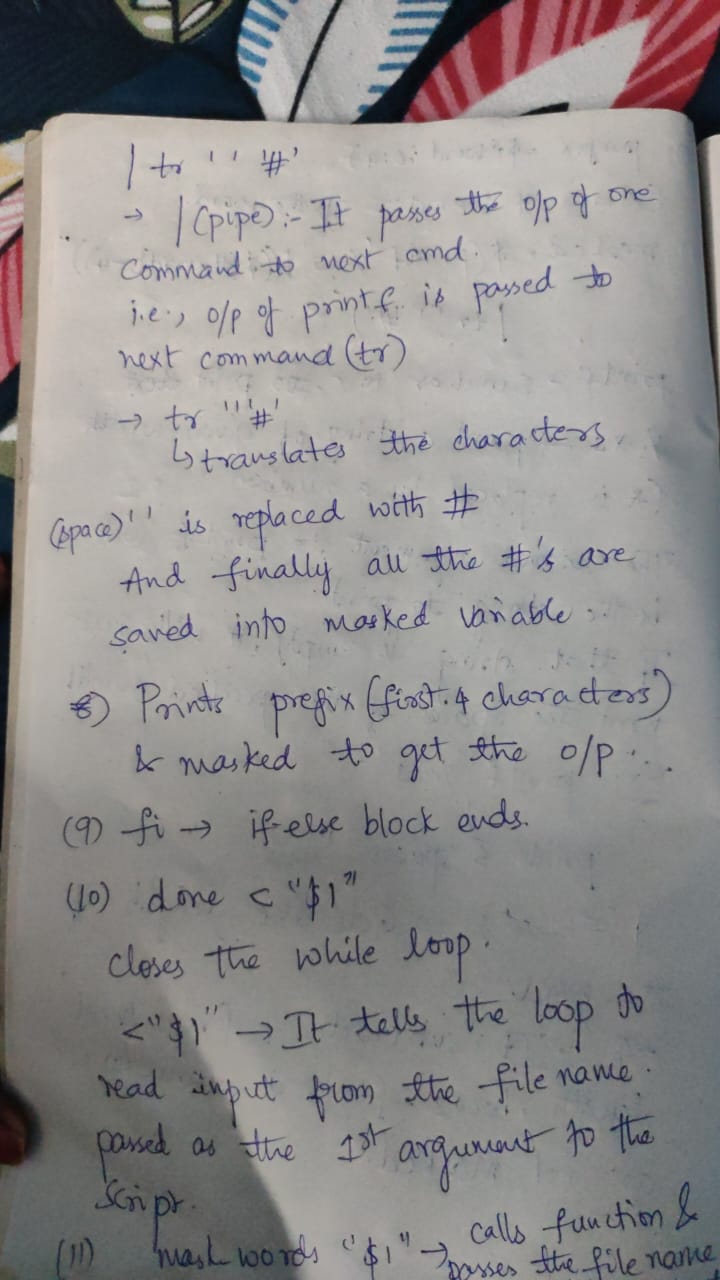 | tr ' ' '#'
→ | (pipe) :- It passes the o/p of one
command to next cmd.
i.e., o/p of printf is passed to
next command (tr)
→ tr ' ' '#'
↳ translates the characters
(space) ' ' is replaced with #
And finally all the #'s are
saved into masked variable.
8) Prints prefix (first 4 characters)
& masked to get the o/p.
(9) fi → if-else block ends.
(10) done < "$1"
closes the while loop.
<"$1" → It tells the loop to
read input from the file name
passed as the 1st argument to the
script.
(11) mask words "$1" → calls function &
passes the file name